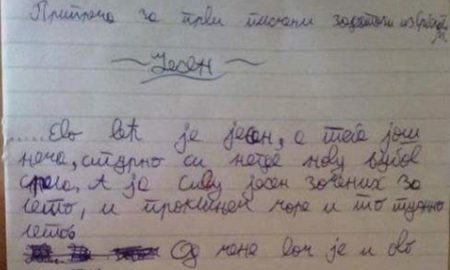 Припрема за први писмени задатак из српског
~ Јесен ~
......Ево већ је јесен, а тебе још
нема, сигурно си негде нову љубав
срела, А ја сиву јесен зачених за
лето, и проклињем море и то тужно
летов
Од мене боч је и ово